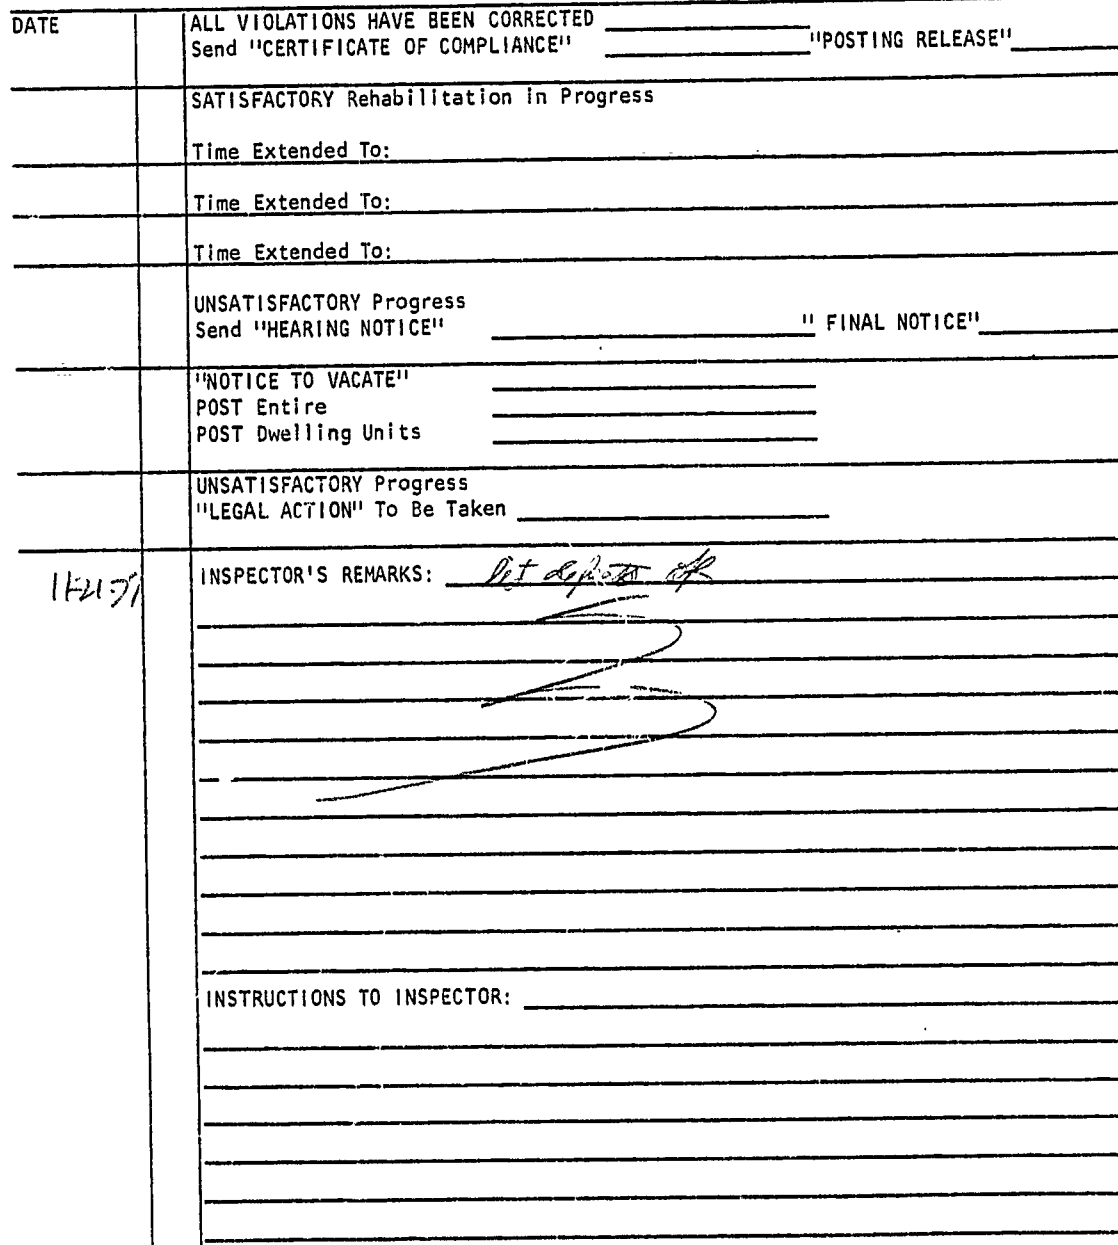 DATE
ALL VIOLATIONS HAVE BEEN CORRECTED
Send "CERTIFICATE OF COMPLIANCE" "POSTING RELEASE"
SATISFACTORY Rehabilitation in Progress
Time Extended To:
Time Extended To:
Time Extended To:
UNSATISFACTORY Progress
Send "HEARING NOTICE" " FINAL NOTICE"
"NOTICE TO VACATE"
POST Entire
POST Dwelling Units
UNSATISFACTORY Progress
"LEGAL ACTION" To Be Taken
INSPECTOR'S REMARKS:
INSTRUCTIONS TO INSPECTOR: